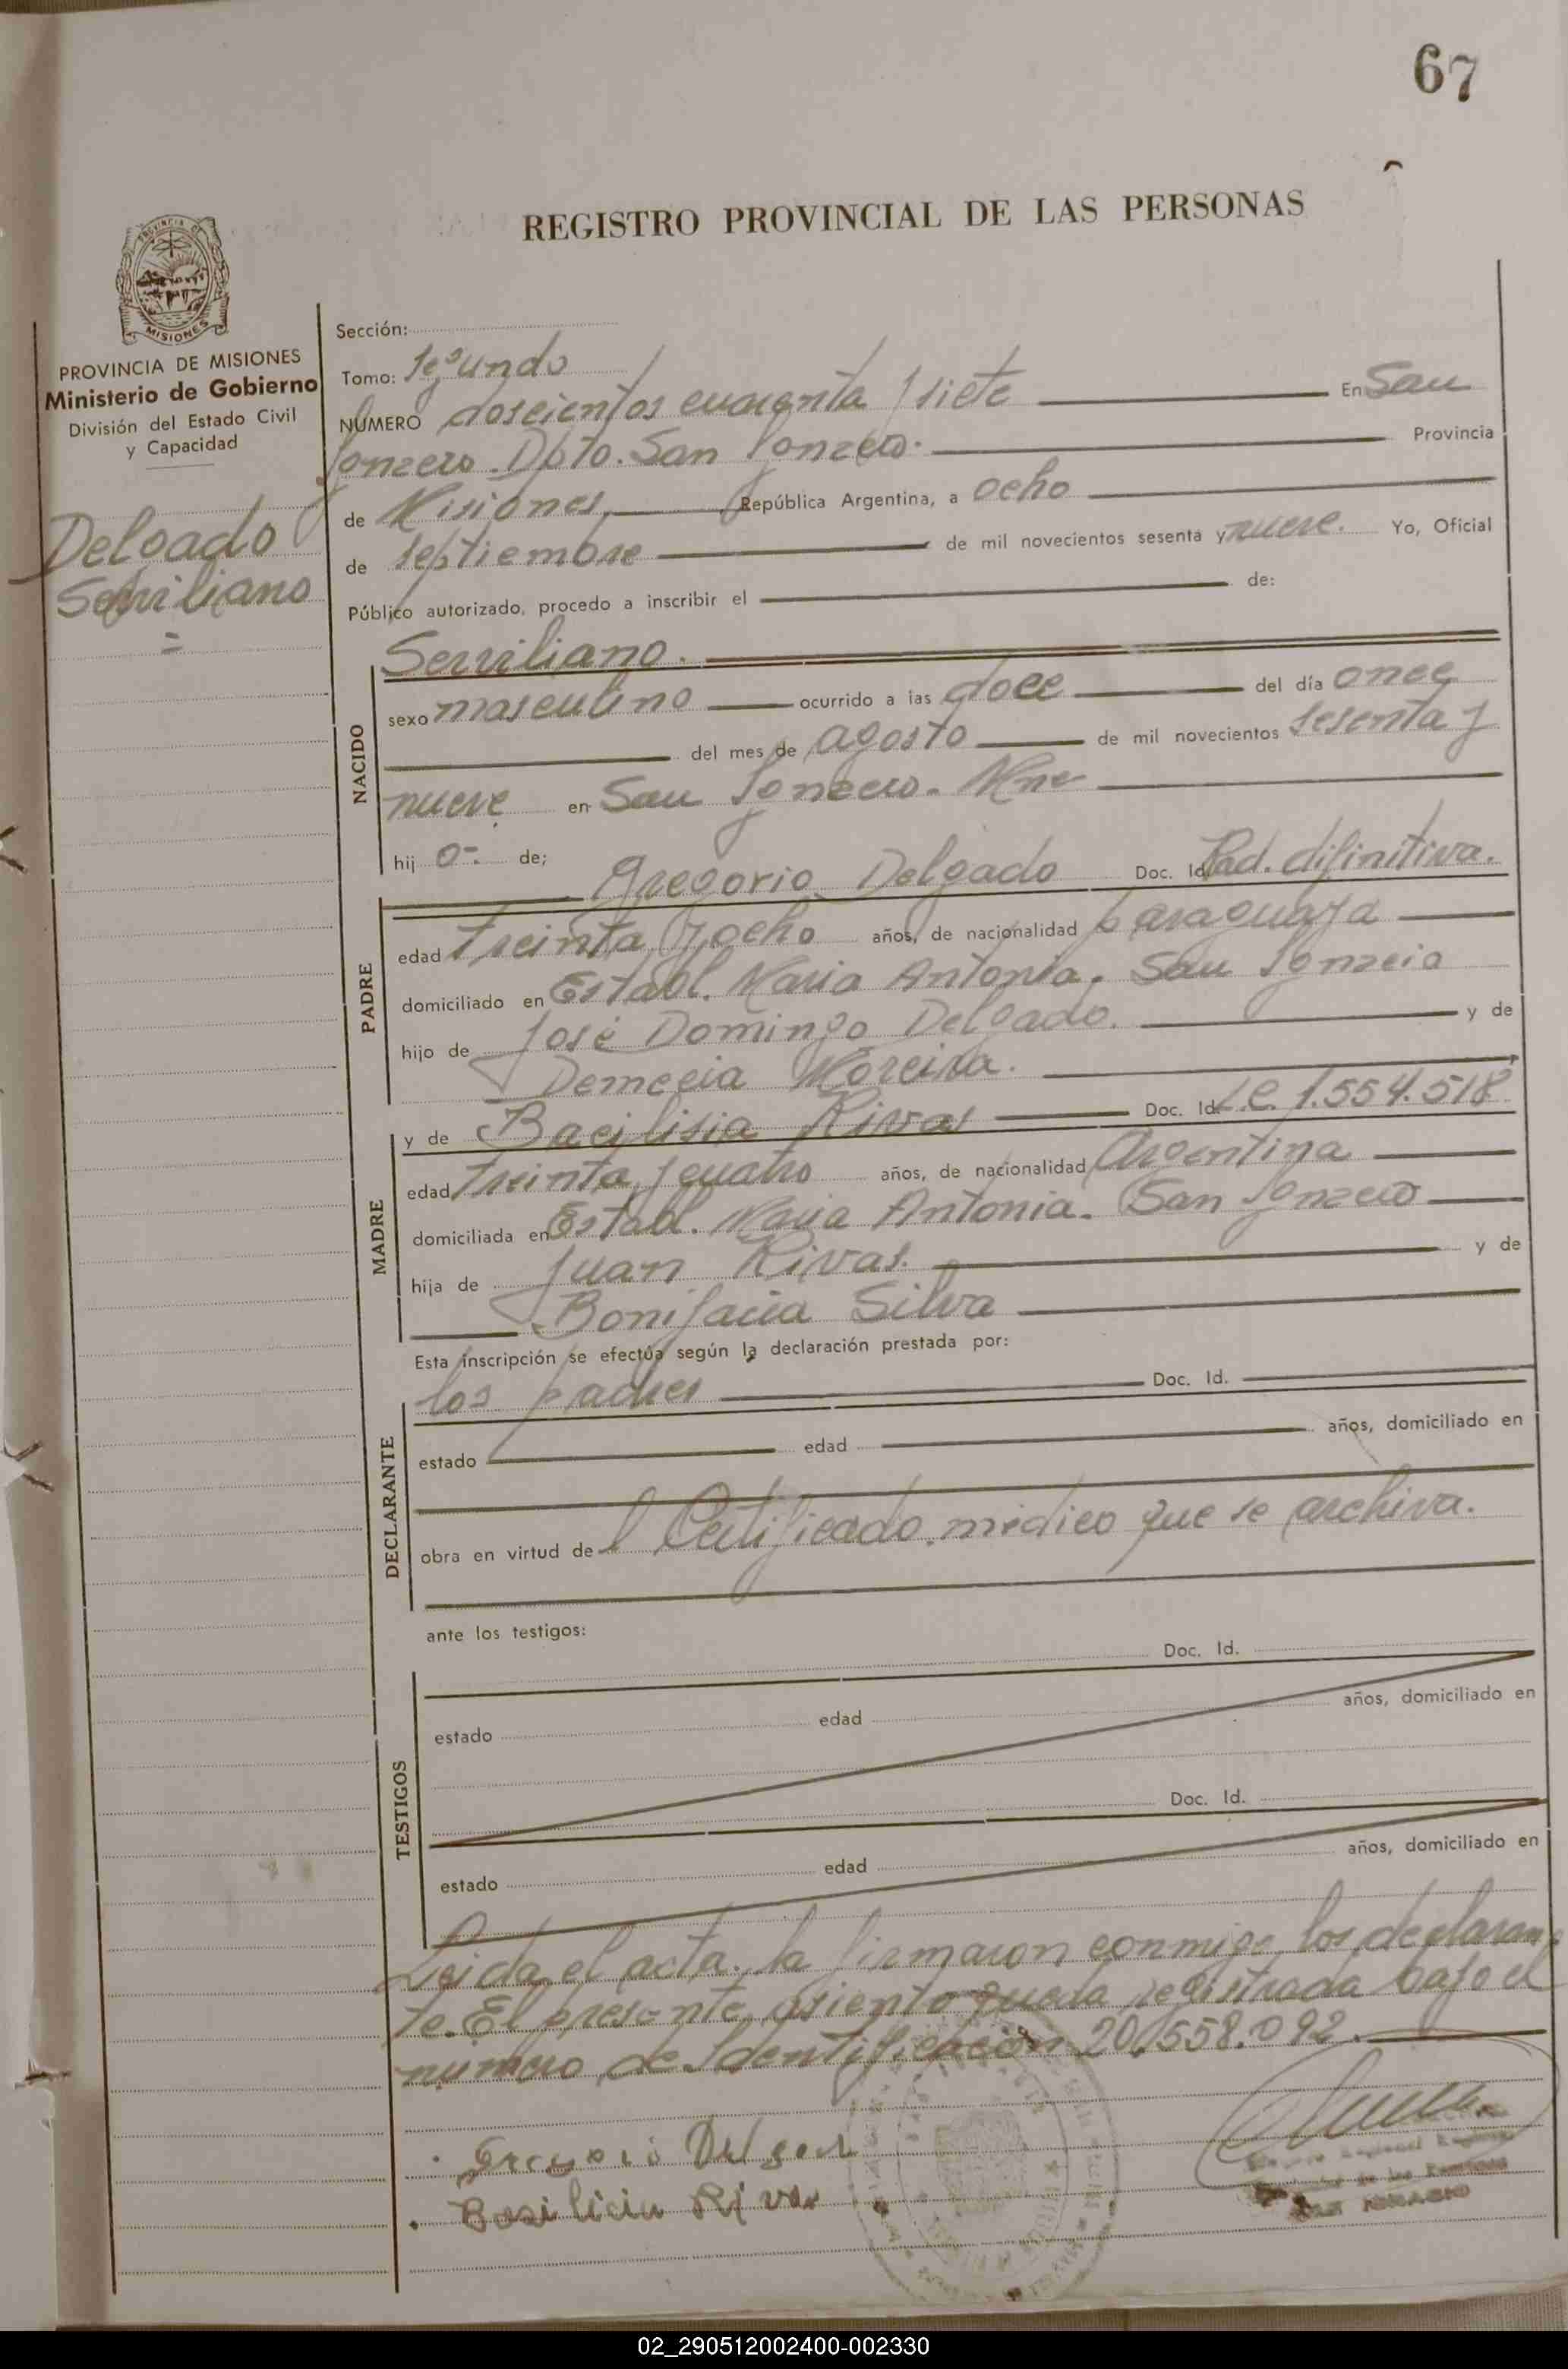 67
REGISTRO PROVINCIAL DE LAS PERSONAS
PROVINCIA DE
MISIONES
PROVINCIA DE MISIONES
Ministerio de Gobierno
División del Estado Civil
y Capacidad
Delgado
Serviliano
=
Sección:
Tomo: Segundo
NÚMERO doscientos cuarenta y siete En San
Ignacio. Dpto. San Ignacio. Provincia
de Misiones, República Argentina, a ocho
de septiembre de mil novecientos sesenta y nueve. Yo, Oficial
Público autorizado, procedo a inscribir el de:
NACIDO
Serviliano.
sexo masculino ocurrido a las doce del día once
del mes de agosto de mil novecientos sesenta y
nueve en San Ignacio. Mnes
hij o-. de;
PADRE
Gregorio Delgado Doc. Id. Rad. difinitiva.
edad treinta y ocho años, de nacionalidad paraguaya
domiciliado en Establ. Maria Antonia. San Ignacio
hijo de José Domingo Delgado. y de
Demecia Moreira.
MADRE
y de Bacilisia Rivas Doc. Id. L.C. 1.554.518
edad treinta y cuatro años, de nacionalidad Argentina
domiciliada en Establ. Maria Antonia. San Ignacio
hija de Juan Rivas. y de
Bonifacia Silva
Esta inscripción se efectúa según la declaración prestada por:
DECLARANTE
los padres Doc. Id.
estado edad años, domiciliado en
obra en virtud de l Certificado medico que se archiva.
ante los testigos:
TESTIGOS
Doc. Id.
estado edad años, domiciliado en
Doc. Id.
estado edad años, domiciliado en
Leida el acta. la firmaron conmigo los declaran
te. El presente asiento queda registrada bajo el
número de Identificación 20.558.092.
Gregorio Delgad
Basilicia Rivas
SAN IGNACIO
02_290512002400-002330